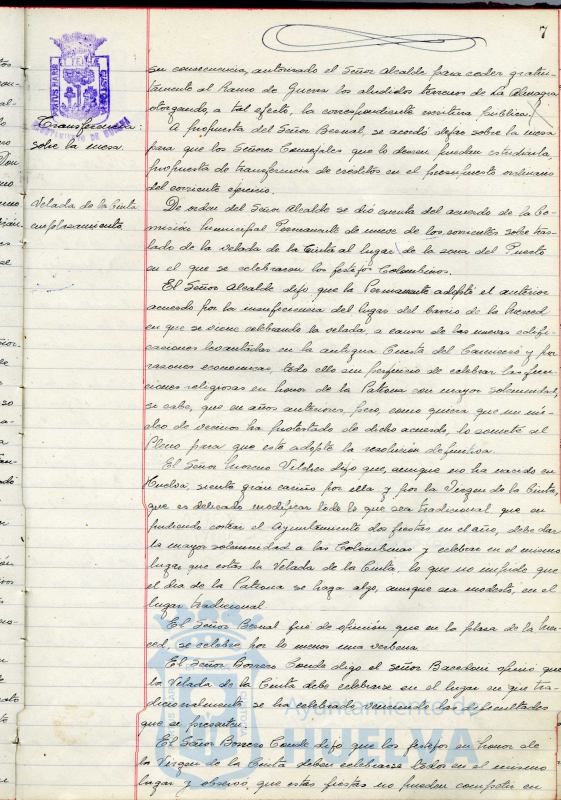 7
su consecuencia, autorizado el Señor Alcalde para ceder gratui-
tamente al Ramo de Guerra los aludidos terrenos de La Almagra
otorgando, a tal efecto, la correspondiente escritura pública.
Transferencia:
sobre la mesa.
A propuesta del Señor Bernal, se acordó dejar sobre la mesa
para que los Señores Concejales que lo deseen puedan estudiarla,
propuesta de transferencia de créditos en el presupuesto ordinario
del corriente ejercicio.
Velada de la Cinta
emplazamiento
De orden del Señor Alcalde se dió cuenta del acuerdo de la Co-
misión Municipal Permanente de nueve de los corrientes sobre tras-
lado de la velada de la Cinta al lugar de la zona del Puerto
en el que se celebraron los festejos Colombinos.
El Señor Alcalde dijo que la Permanente adoptó el anterior
acuerdo por la insuficiencia del lugar del barrio de la Merced
en que se viene celebrando la velada, a causa de las nuevas edifi-
caciones levantadas en la antigua Cuesta del Carnicero y por
razones económicas, todo ello sin perjuicio de celebrar las fun-
ciones religiosas en honor de la Patrona con mayor solemnidad,
si cabe, que en años anteriores, pero, como quiera que un nú-
cleo de vecinos ha protestado de dicho acuerdo, lo somete al
Pleno para que este adopte la resolución definitiva.
El Señor Moreno Vilches dijo que, aunque no ha nacido en
Huelva, siente gran cariño por ella y por la Virgen de la Cinta,
que es delicado modificar todo lo que sea tradicional, que no
pudiendo costear el Ayuntamiento dos fiestas en el año, debe dar
la mayor solemnidad a las Colombinas y celebrar en el mismo
lugar que estas la Velada de la Cinta, lo que no impide que
el dia de la Patrona se haga algo, aunque sea modesto, en el
lugar tradicional.
El Señor Bernal fué de opinión que en la plaza de la Mer-
ced, se celebre por lo menos una verbena.
El Señor Borrero Conde digo el señor opinó que
la Velada de la Cinta debe celebrarse en el lugar en que tra-
dicionalmente se ha celebrado venciendo las dificultades
que se presenten.
El Señor Borrero Conde dijo que los festejos en honor de
la Virgen de la Cinta deben celebrarse todos en el mismo
lugar y observó, que estas fiestas no pueden competir en
Ayuntamiento de
HUELVA